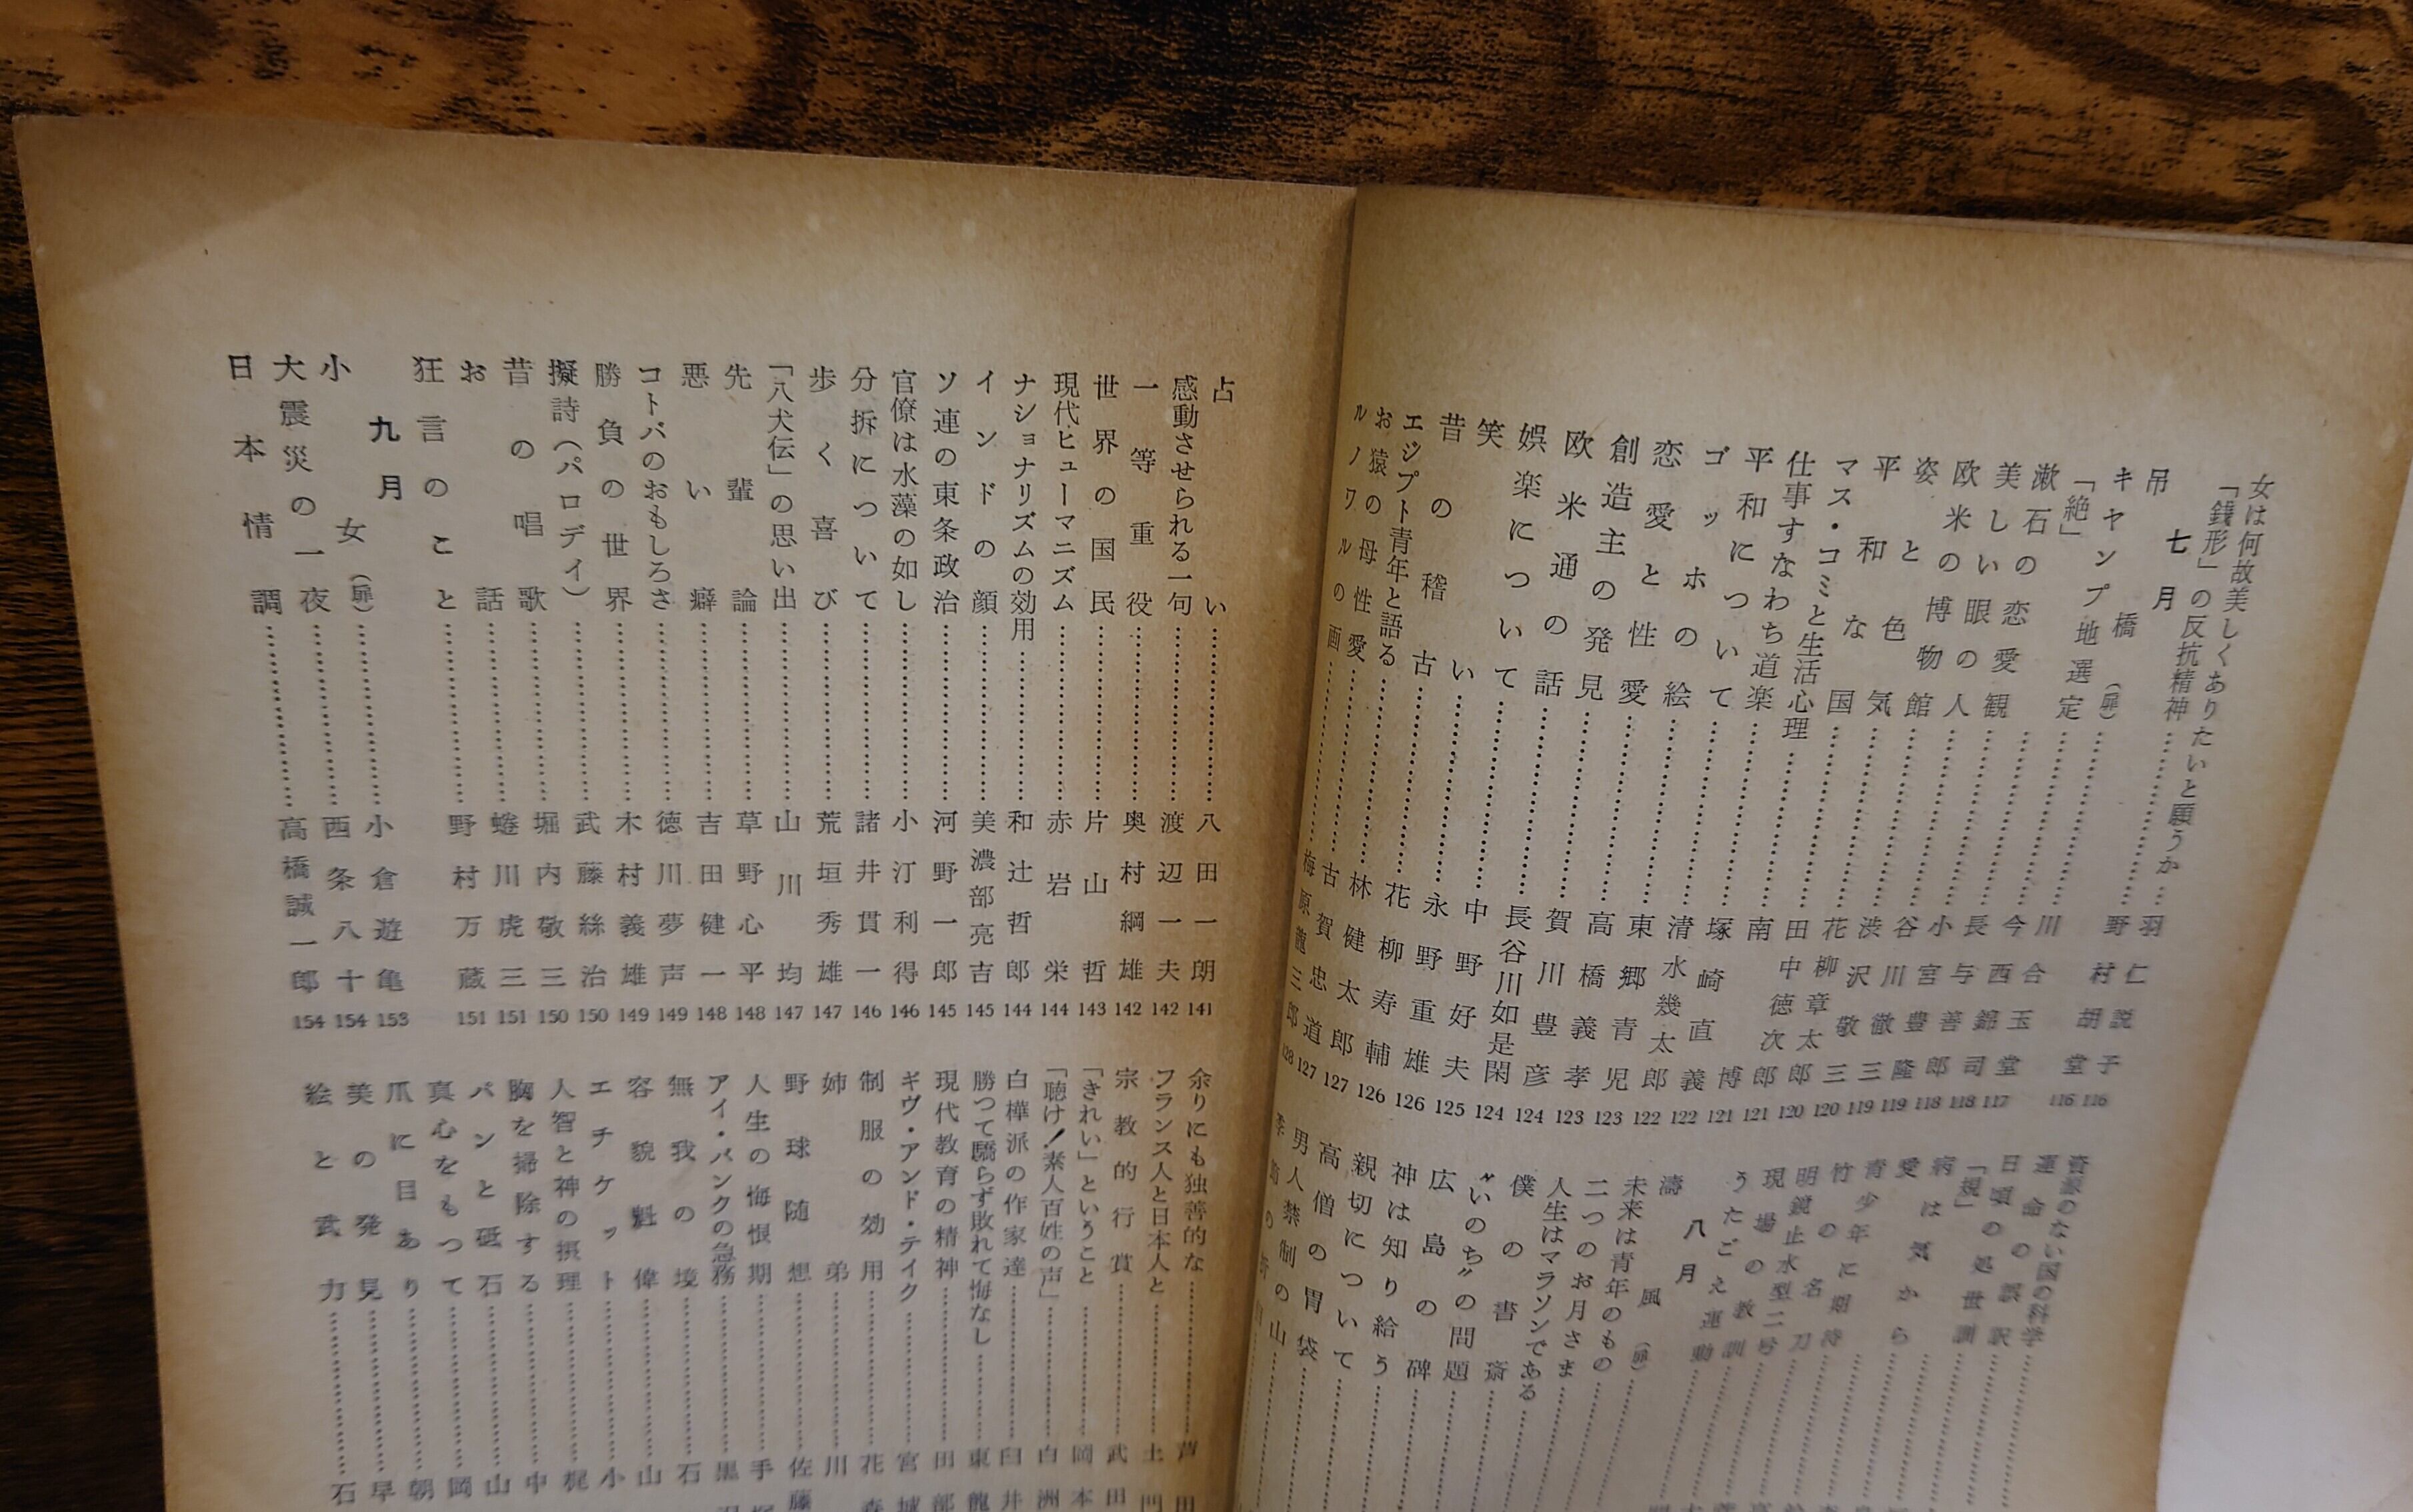 女は何故美しくありたいと願うか……羽仁説子 116
「銭形」の反抗精神……野村胡堂 116
七月
吊橋(扉)……川合玉堂 117
キヤンプ地選定……今西錦司 118
「絶」……長与善郎 118
漱石の恋愛観……小宮豊隆 119
美しい眼の人……谷川徹三 119
欧米の博物館……渋沢敬三 120
姿と色気……花柳章太郎 120
平和な国……田中徳次郎 121
マス・コミと生活心理……南博 121
仕事すなわち道楽……塚崎直義 122
平和について……清水幾太郎 122
ゴッホの絵……東郷青児 123
恋愛と性愛……高橋義孝 123
創造主の発見……賀川豊彦 124
欧米通の話……長谷川如是閑 124
娯楽について……中野好夫 125
笑い……永野重雄 126
昔の稽古……花柳寿輔 126
エジプト青年と語る……林健太郎 127
お猿の母性愛……古賀忠道 127
ルノワルの画……梅原龍三郎 128
資源のない国の科学……
運命の誤訳……
日頃の処世訓……
「規」……
病は気から……
愛……
青少年に期待……
竹の名刀……
明鏡止水型二号……
現場の教訓……
うたごえ運動……
八月
濤風(扉)……
未来は青年のもの……
二つのお月さま……
人生はマラソンである……
僕の書斎……
〝いのち〟の問題……
広島の碑……
神は知り給う……
親切について……
高僧の胃袋……
男人禁制の山……
占い……八田一朗 141
感動させられる一句……渡辺一夫 142
一等重役……奥村綱雄 142
世界の国民……片山哲 143
現代ヒューマニズム……赤岩栄 144
ナショナリズムの効用……和辻哲郎 144
インドの顔……美濃部亮吉 145
ソ連の東条政治……河野一郎 145
官僚は水藻の如し……小汀利得 146
分拆について……諸井貫一 146
歩く喜び……荒垣秀雄 147
「八犬伝」の思い出……山川均 147
先輩論……草野心平 148
悪い癖……吉田健一 148
コトバのおもしろさ……徳川夢声 149
勝負の世界……木村義雄 149
擬詩(パロデイ)……武藤絲治 150
昔の唱歌……堀内敬三 150
お話……蜷川虎三 151
狂言のこと……野村万蔵 151
九月
小女(扉)……小倉遊亀 153
大震災の一夜……西条八十 154
日本情調……高橋誠一郎 154
余りにも独善的な……芦田
フランス人と日本人と……土門
宗教的行賞……武田
「きれい」ということ……岡本
「聴け!素人百姓の声」……白洲
白樺派の作家達……臼井
勝つて驕らず敗れて悔なし……東龍
現代教育の精神……田部
ギヴ・アンド・テイク……宮城
制服の効用……花森
姉弟……川
野球随想……佐藤
人生の悔恨期……手塚
アイ・バンクの急務……黒沢
無我の境……石
容貌魁偉……山
エチケット……小
人智と神の摂理……梶
胸を掃除する……中
パンと砥石……山
真心をもつて……岡
爪に目あり……朝
美の発見……早
絵と武力……石